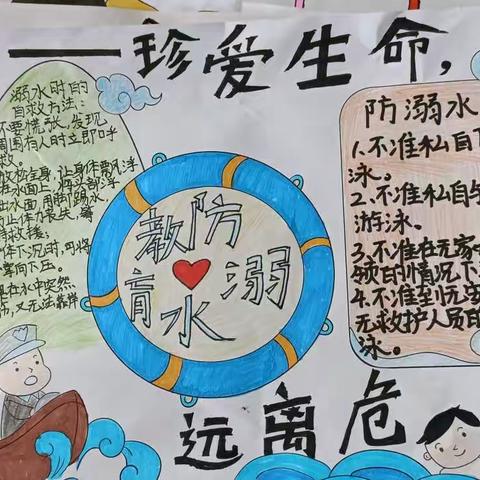 ——珍爱生命，
溺水时的
自救方法：
不要慌张，发现
周围有人时立即呼
救。
放松全身，让身体漂浮
在水面上，将头部浮
出水面，用脚踢水，
防止体力丧失，等
待救援；
体下沉时，可将
掌向下压。
在水中突然
防溺水
教育
防溺水
1.不准私自下
泳。
2.不准私自与
游泳。
3.不准在无家
领的情况下
4.不准到无安
无救护人员的
泳。
远离危